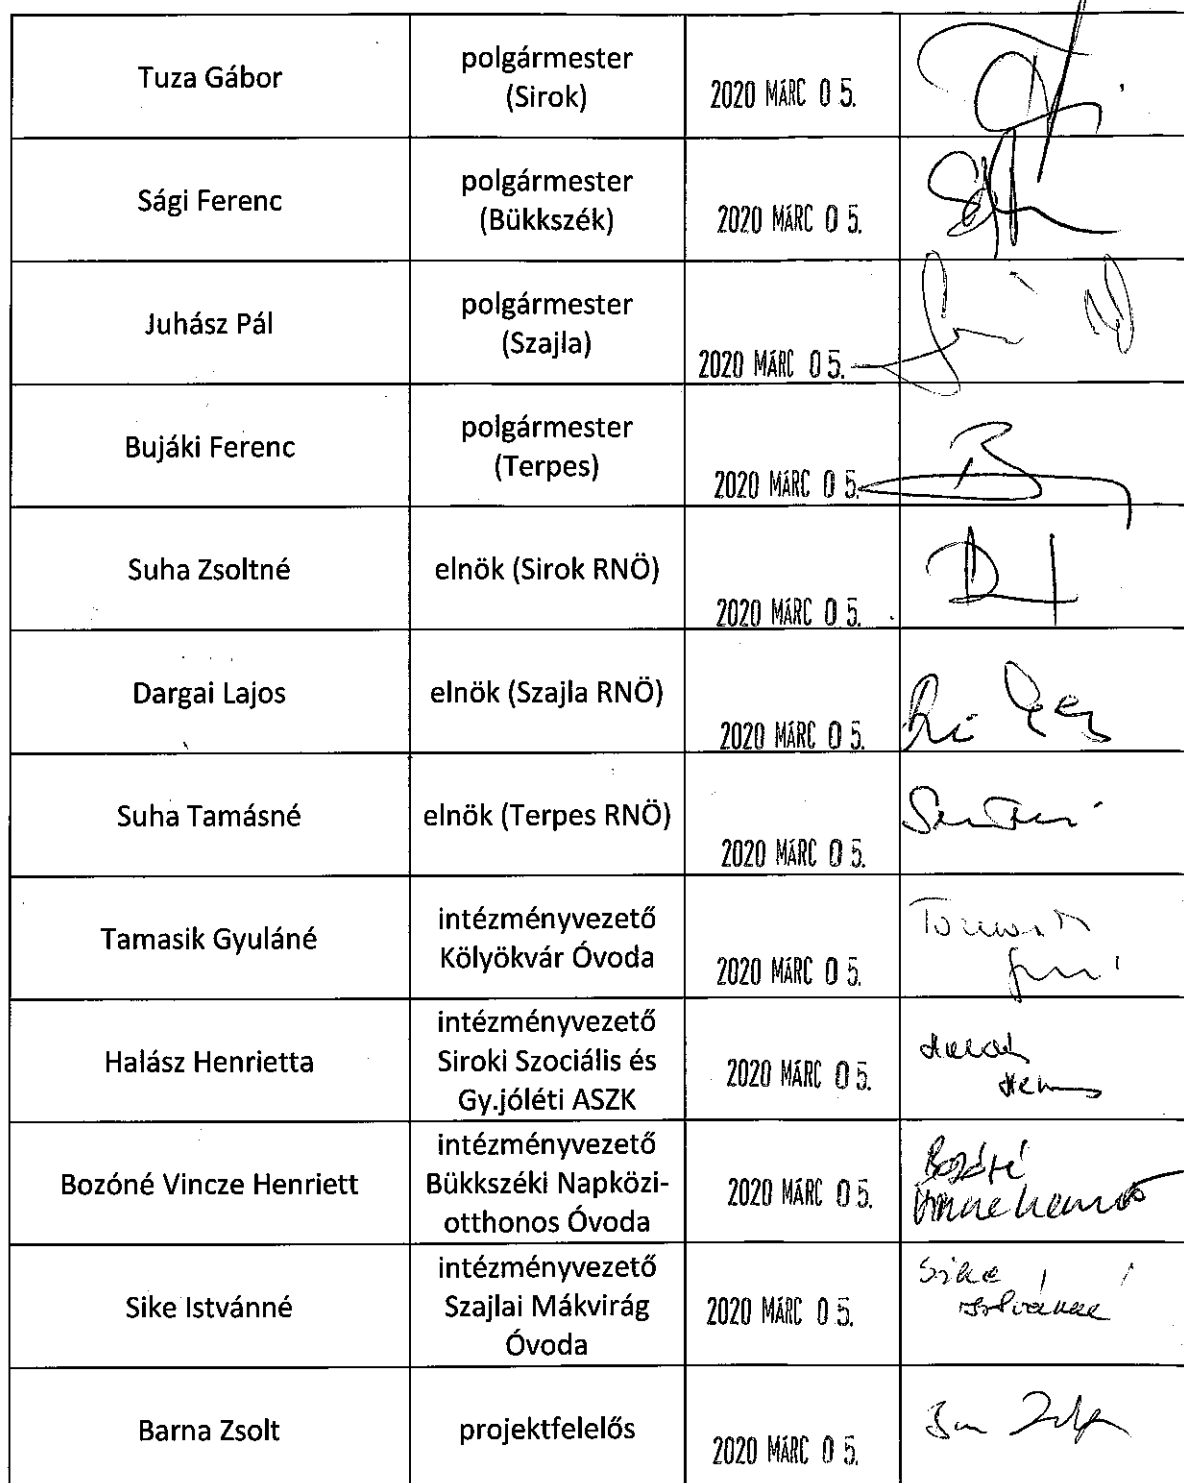 Tuza Gábor
polgármester
(Sirok)
2020 MÁRC 05.
Sági Ferenc
polgármester
(Bükkszék)
2020 MÁRC 05.
Juhász Pál
polgármester
(Szajla)
2020 MÁRC 05.
Bujáki Ferenc
polgármester
(Terpes)
2020 MÁRC 05.
Suha Zsoltné
elnök (Sirok RNÖ)
2020 MÁRC 05.
Dargai Lajos
elnök (Szajla RNÖ)
2020 MÁRC 05.
Suha Tamásné
elnök (Terpes RNÖ)
2020 MÁRC 05.
Tamasik Gyuláné
intézményvezető
Kölyökvár Óvoda
2020 MÁRC 05.
Halász Henrietta
intézményvezető
Siroki Szociális és
Gy.jóléti ASZK
2020 MÁRC 05.
Bozóné Vincze Henriett
intézményvezető
Bükkszéki Napközi-
otthonos Óvoda
2020 MÁRC 05.
Sike Istvánné
intézményvezető
Szajlai Mákvirág
Óvoda
2020 MÁRC 05.
Sike
Istvánné
Barna Zsolt
projektfelelős
2020 MÁRC 05.